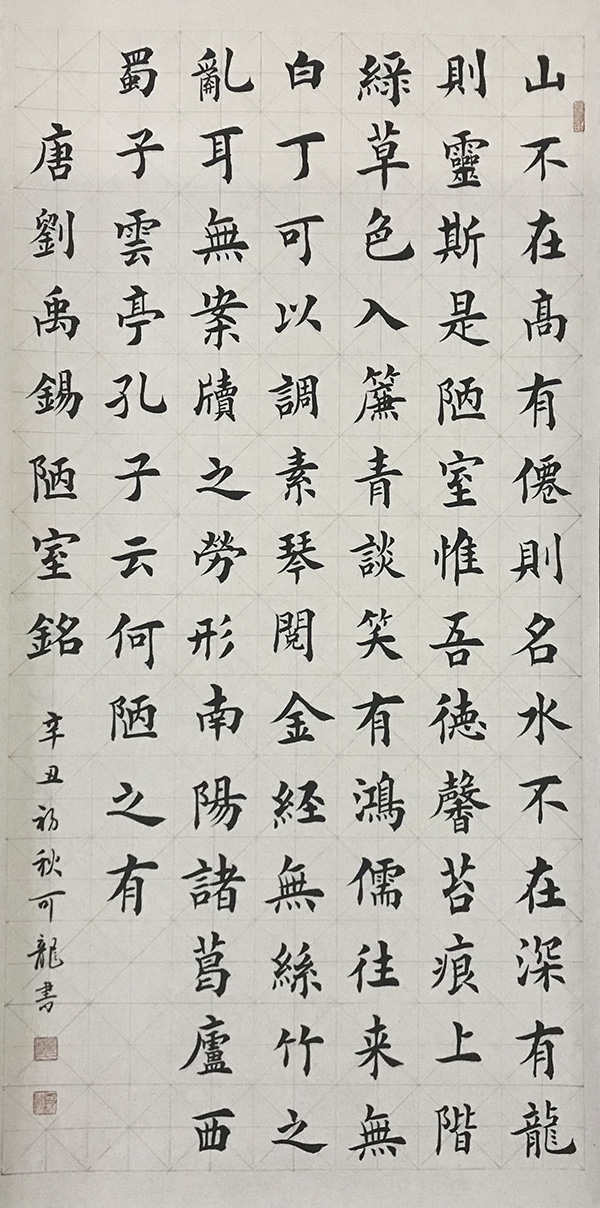 山不在高有僊則名水不在深有龍
則靈斯是陋室惟吾德馨苔痕上階
緑草色入簾青談笑有鴻儒往来無
白丁可以調素琴閱金経無絲竹之
亂耳無案牘之勞形南陽諸葛廬西
蜀子雲亭孔子云何陋之有
唐劉禹錫陋室銘
辛丑初秋可龍書